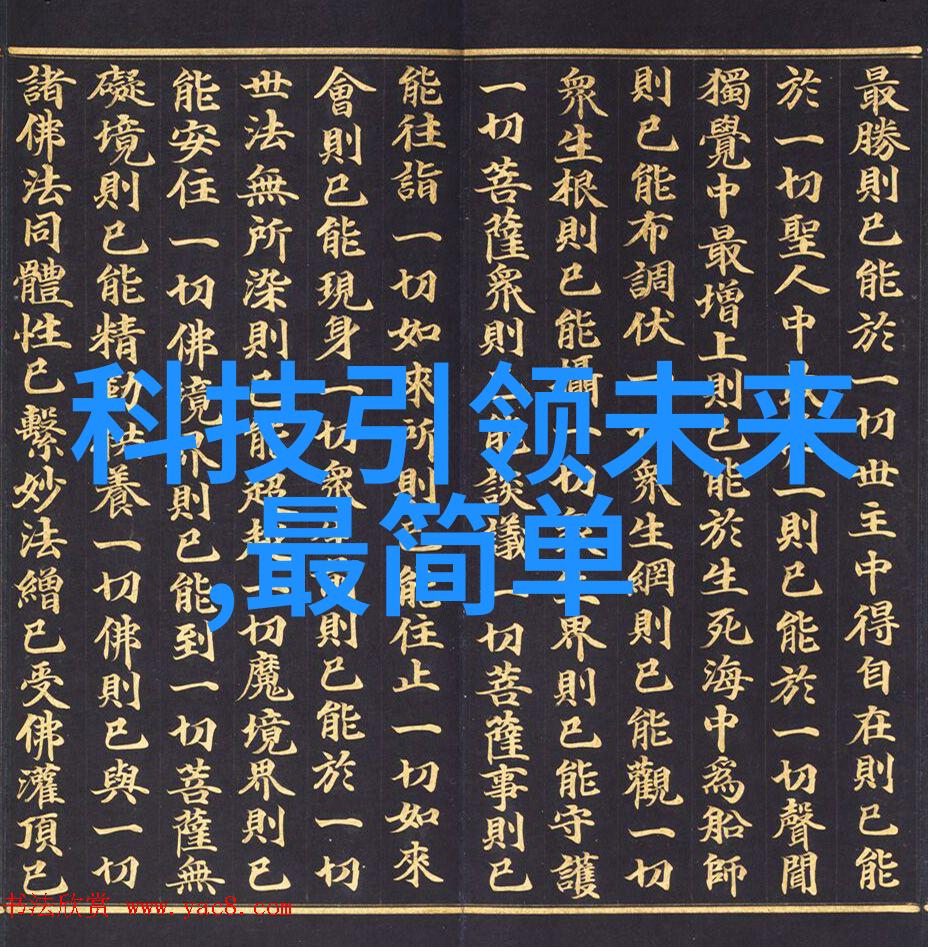 最勝則已能於一切世主中得自在則已能
於一切聖人中
一則已能於一切聲聞
獨覺中最增上則已能於生死海中為船師
則已能布調伏一
眾生網則已能觀一切
眾生根則已能攝
切
界則已能守護
一切菩薩眾則
能談議一切菩薩事則已
能往詣一切如來所則
能住止一切如來
會則已能現身一切眾
則已能於一切
世法無所染則已能超
一切魔境界則已
能安住一切佛境界則已能到一切菩薩無
礙境則已能精勤供養一切佛則已與一切
諸佛法同體性已繫妙法繒已受佛灌頂已
科技引领未来
,最简单
书法欣赏 www.yac8.com